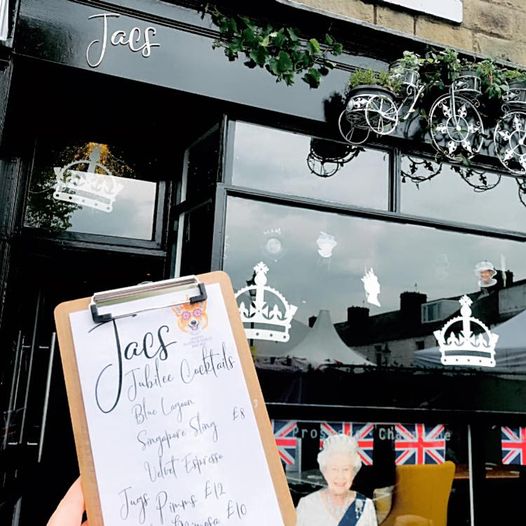 Jacs
Jacs
Jubilee Cocktails
Blue Lagoon
Singapore Sling £8
Velvet Espresso
Jugs Pimms £12
£10